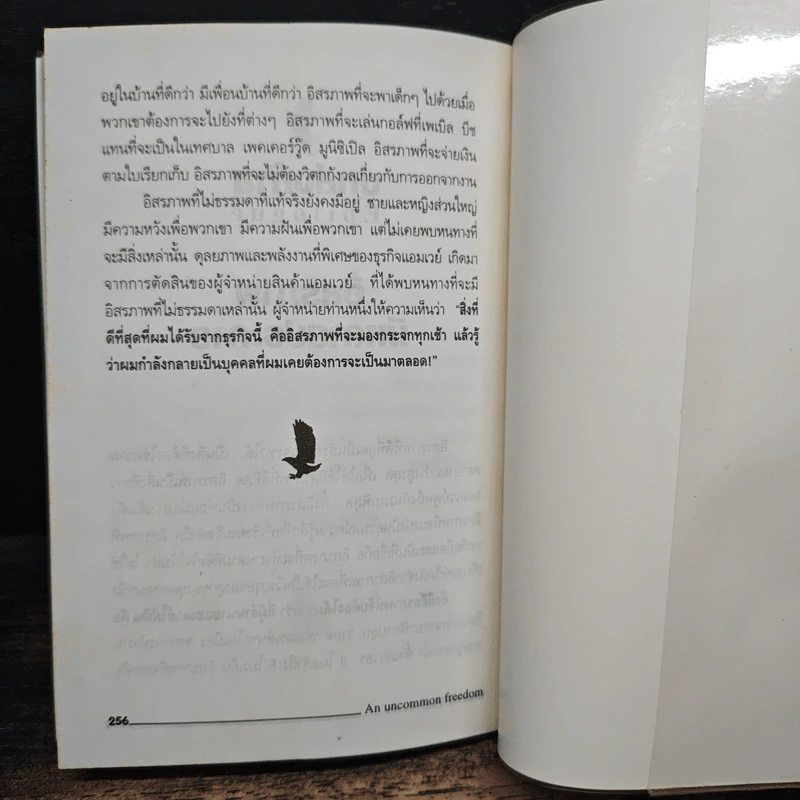 อยู่ในบ้านที่ดีกว่า มีเพื่อนบ้านที่ดีกว่า อิสรภาพที่จะพาเด็กๆ ไปด้วยเมื่อ
พวกเขาต้องการจะไปยังที่ต่างๆ อิสรภาพที่จะเล่นกอล์ฟที่เพเบิล บีช
แทนที่จะเป็นในเทศบาล เพคเคอร์วู๊ด มูนิซิเปิล อิสรภาพที่จะจ่ายเงิน
ตามใบเรียกเก็บ อิสรภาพที่จะไม่ต้องวิตกกังวลเกี่ยวกับการออกจากงาน
อิสรภาพที่ไม่ธรรมดาที่แท้จริงยังคงมีอยู่ ชายและหญิงส่วนใหญ่
มีความหวังเพื่อพวกเขา มีความฝันเพื่อพวกเขา แต่ไม่เคยพบหนทางที่
จะมีสิ่งเหล่านั้น ดุลยภาพและพลังงานที่พิเศษของธุรกิจแอมเวย์ เกิดมา
จากการตัดสินของผู้จำหน่ายสินค้าแอมเวย์ ที่ได้พบหนทางที่จะมี
อิสรภาพที่ไม่ธรรมดาเหล่านั้น ผู้จำหน่ายท่านหนึ่งให้ความเห็นว่า "สิ่งที่
ดีที่สุดที่ผมได้รับจากธุรกิจนี้ คืออิสรภาพที่จะมองกระจกทุกเช้า แล้วรู้
ว่าผมกำลังกลายเป็นบุคคลที่ผมเคยต้องการจะเป็นมาตลอด!"
256 An uncommon freedom